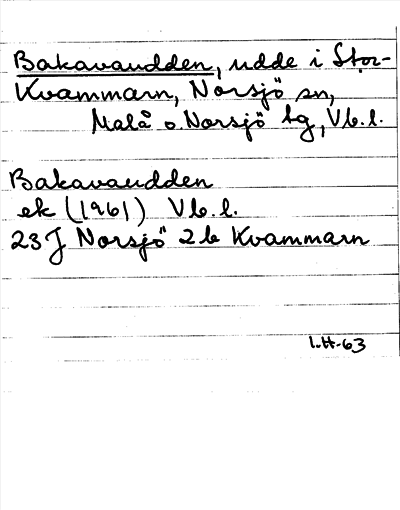 Bakavaudden, udde i Stor-
Kvammarn, Norsjö sn,
Malå o. Norsjö tg, Vb.l.
Bakavaudden
ek (1961) Vb.l.
23J Norsjö 2b Kvammarn
I.H-63